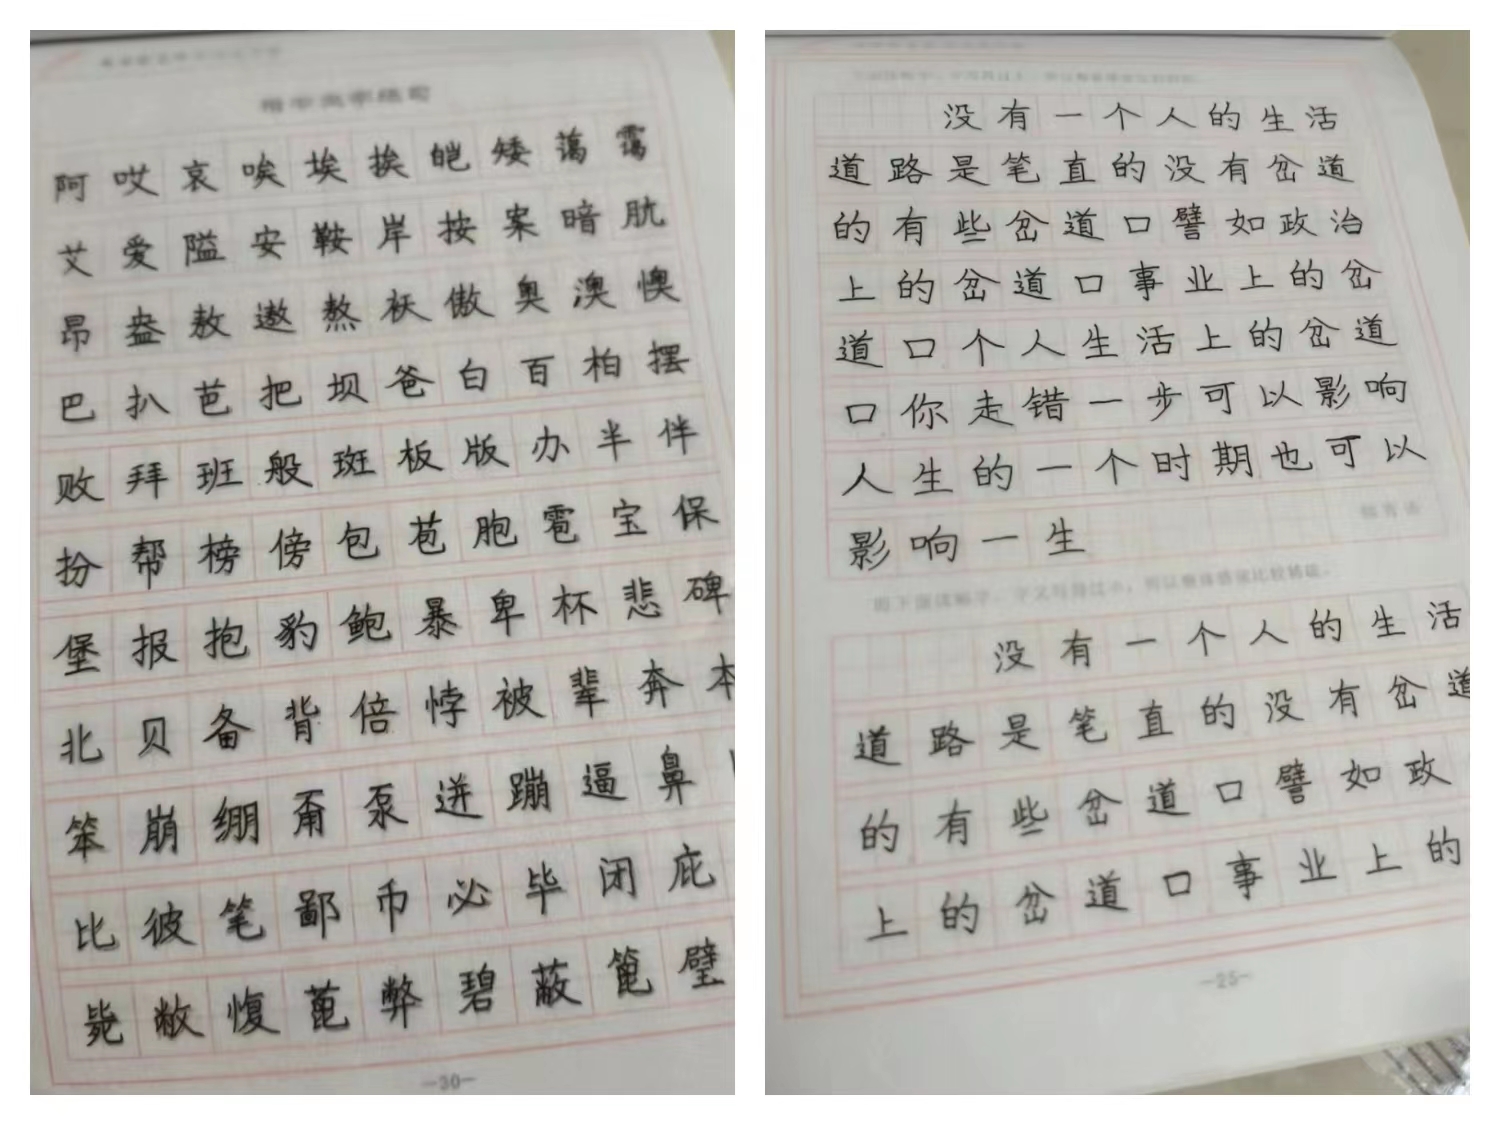 阿哎哀唉埃挨皑矮蔼霭
艾爱隘安鞍岸按案暗肮
昂盎敖遨熬袄傲奥澳懊
巴扒芭把坝爸白百柏摆
败拜班般斑板版办半伴
扮帮榜傍包苞胞雹宝保
堡报抱豹鲍暴卑杯悲碑
北贝备背倍悖被辈奔本
笨崩绷甭泵迸蹦逼鼻
比彼笔鄙币必毕闭庇
毙敝愎蓖弊碧蔽篦璧
—30—
没有一个人的生活
道路是笔直的没有岔道
的有些岔道口譬如政治
上的岔道口事业上的岔
道口个人生活上的岔道
口你走错一步可以影响
人生的一个时期也可以
影响一生
没有一个人的生活
道路是笔直的没有岔道
的有些岔道口譬如政
上的岔道口事业上的
—25—